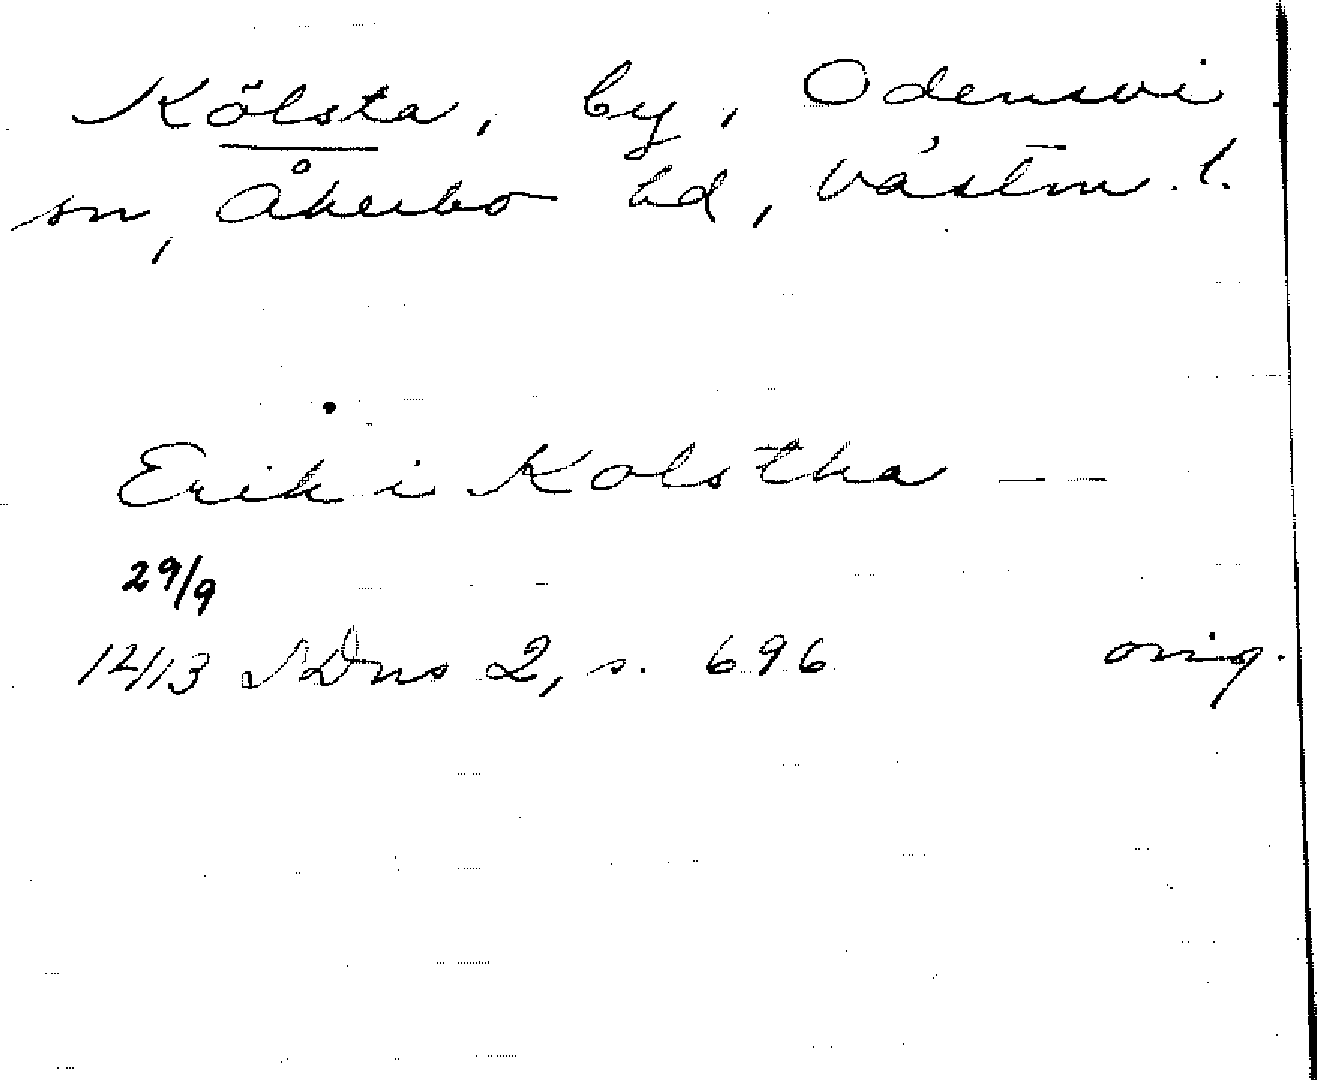 Kölsta, by, Odensvi
sn, Åkerbo hd, Västm. l.
Erik i Kolstha — —
29/9
1413 SDns 2, s. 696 orig.